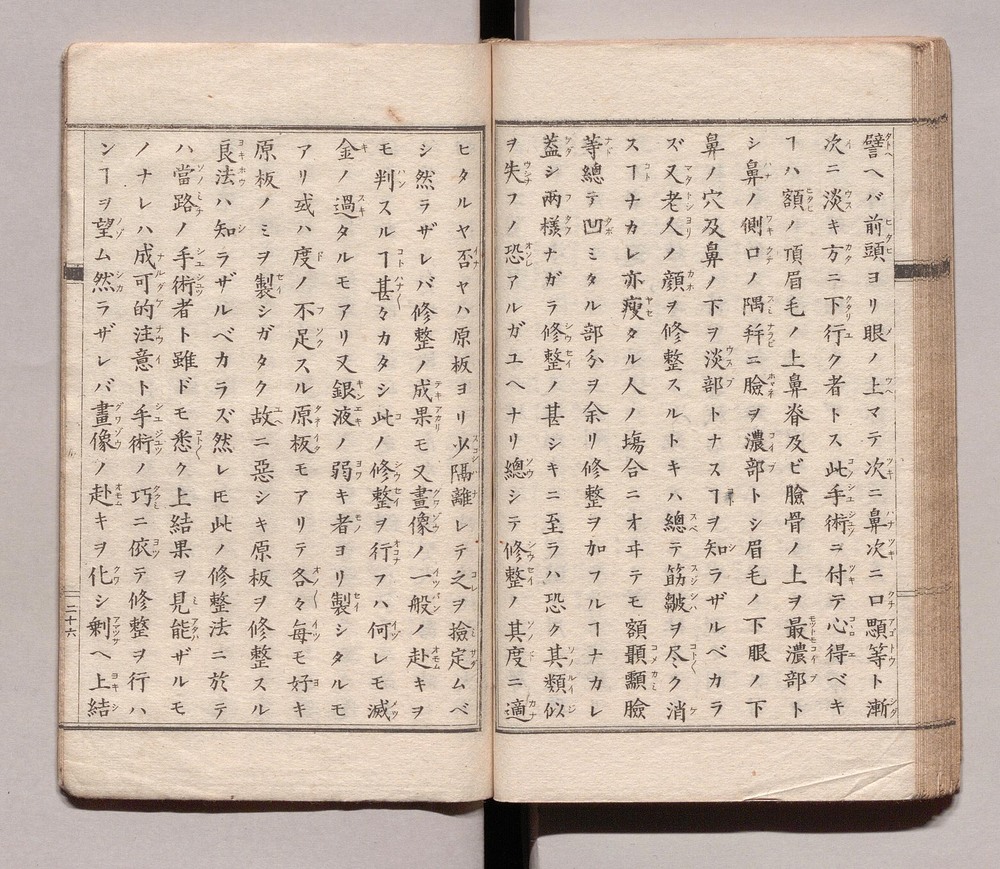 譬ヘバ前頭ヨリ眼ノ上マテ次ニ鼻次ニ口顋等ト漸
次ニ淡キ方ニ下行ク者トス此手術ニ付テ心得ベキ
ヿハ額ノ頂眉毛ノ上鼻脊及ビ臉骨ノ上ヲ最濃部ト
シ鼻ノ側口ノ隅幷ニ臉ヲ濃部トシ眉毛ノ下眼ノ下
鼻ノ穴及鼻ノ下ヲ淡部トナスヿヲ知ラザルベカラ
ズ又老人ノ顔ヲ修整スルトキハ總テ筋皺ヲ尽ク消
スヿナカレ亦瘦タル人ノ塲合ニオヰテモ額顳顬臉
等總テ凹ミタル部分ヲ余リ修整ヲ加フルヿナカレ
蓋シ両樣ナガラ修整ノ甚シキニ至ラハ恐ク其類似
ヲ失フノ恐アルガユヘナリ總シテ修整ノ其度ニ適
ヒタルヤ否ヤハ原板ヨリ少隔離レテ之ヲ撿定ムベ
シ然ラザレバ修整ノ成果モ又畫像ノ一般ノ赴キヲ
モ判スルヿ甚々カタシ此ノ修整ヲ行フハ何レモ滅
金ノ過タルモアリ又銀液ノ弱キ者ヨリ製シタルモ
アリ或ハ度ノ不足スル原板モアリテ各々每モ好キ
原板ノミヲ製シガタク故ニ惡シキ原板ヲ修整スル
良法ハ知ラザルベカラズ然レ𪜈此ノ修整法ニ於テ
ハ當路ノ手術者ト雖ドモ悉ク上結果ヲ見能ザルモ
ノナレハ成可的注意ト手術ノ巧ニ依テ修整ヲ行ハ
ンヿヲ望ム然ラザレバ畫像ノ赴キヲ化シ剰ヘ上結
二十六